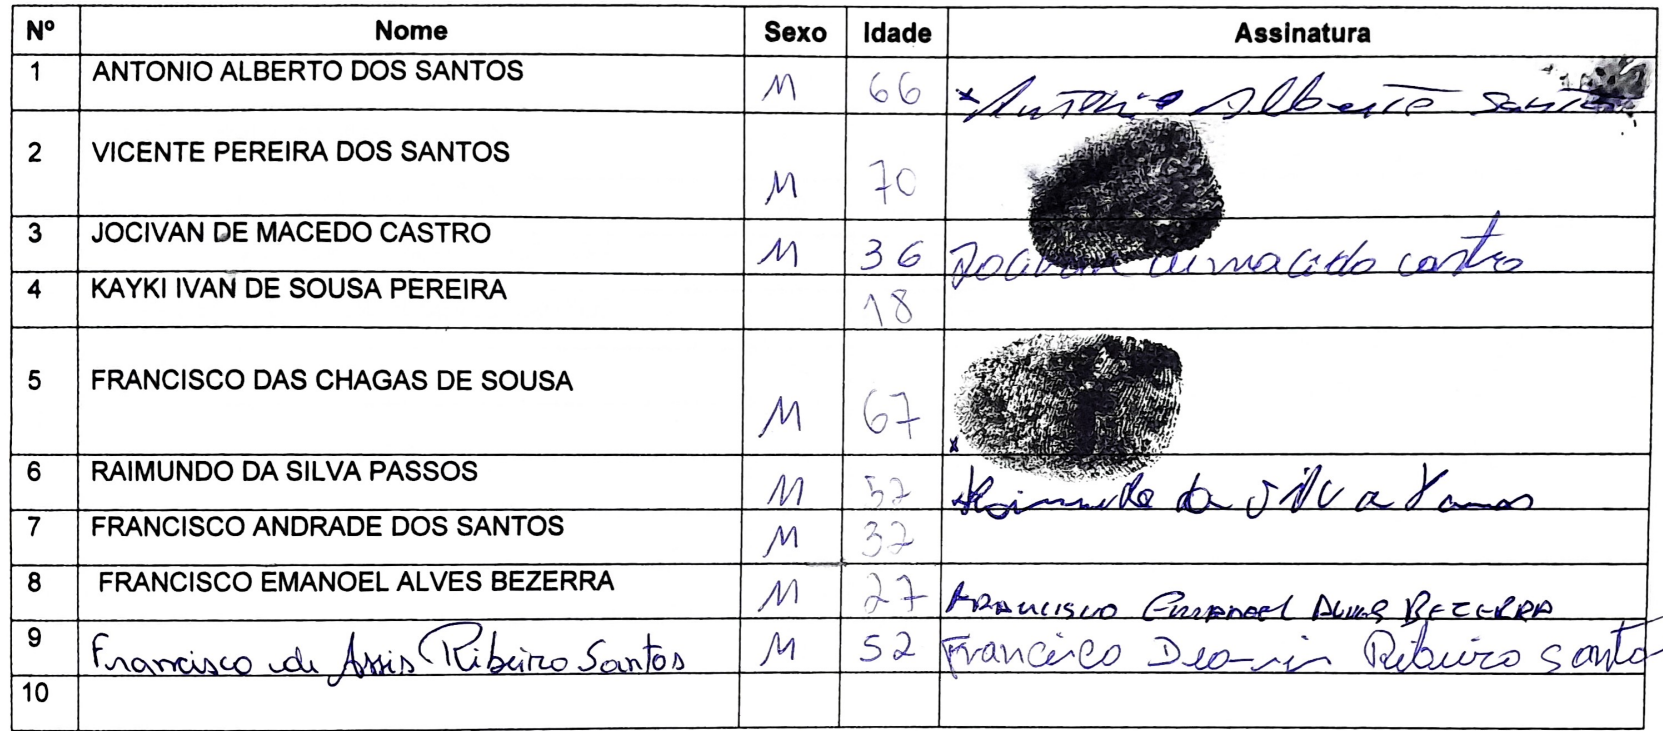 Nº Nome Sexo Idade Assinatura
1 ANTONIO ALBERTO DOS SANTOS M 66 x Antonio Alberto Santos
2 VICENTE PEREIRA DOS SANTOS M 70
3 JOCIVAN DE MACEDO CASTRO M 36 Jocivan de macedo castro
4 KAYKI IVAN DE SOUSA PEREIRA 18
5 FRANCISCO DAS CHAGAS DE SOUSA M 67 x
6 RAIMUNDO DA SILVA PASSOS M 52 Raimundo da Silva
7 FRANCISCO ANDRADE DOS SANTOS M 32
8 FRANCISCO EMANOEL ALVES BEZERRA M 27 FRANCISCO EMANOEL ALVES BEZERRA
9 Francisco de Assis Ribeiro Santos M 52 Francisco Ribeiro Santo
10